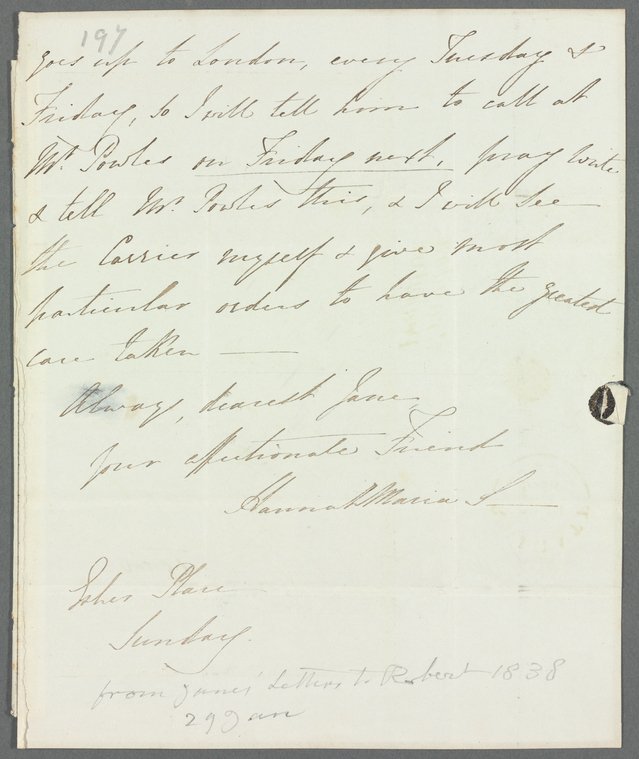 197
goes up to London, every Tuesday &
Friday, so I will tell him to call at
Mr. Powles on Friday next, pray write
& tell Mr. Powles this, & I will see
the Carrier myself & give most
particular orders to have the greatest
care taken —
Always, dearest Jane
your affectionate Friend
Hannah Maria S—
Esher Place
Sunday.
from Janes' Letters to Robert 1838
29 Jan